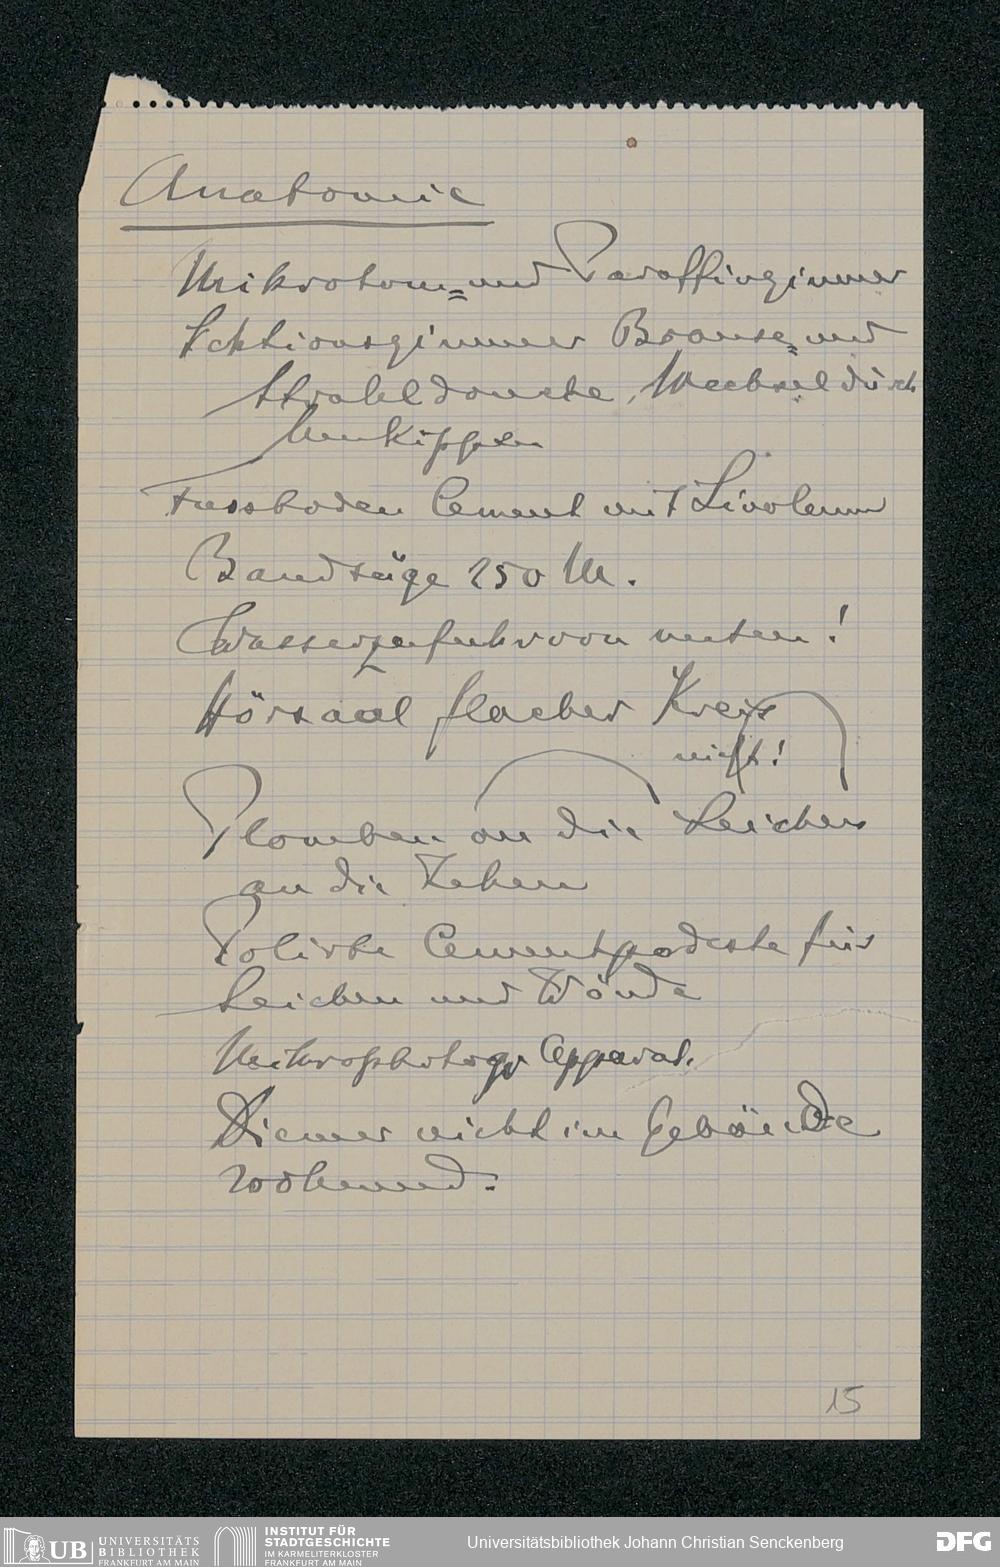 Anatomie
Mikrotom= und Paraffinzimmer
Sektionszimmer Brause= und
Strahldouche, Wechsel durch
Umkippen
Fussboden Cement mit Linoleum
Bandsäge 250 M.
Wasserzufuhr von unten!
Hörsaal flacher Kreis
nicht!
Plomben an die Leichen
an die Zehen
Polirte Cementpodeste für
Leichen und Wände
Mikrophotogr Apparat.
Diener nicht im Gebäude
wohnend.
15
UB UNIVERSITÄTS
BIBLIOTHEK
FRANKFURT AM MAIN
INSTITUT FÜR
STADTGESCHICHTE
IM KARMELITERKLOSTER
FRANKFURT AM MAIN
Universitätsbibliothek Johann Christian Senckenberg
DFG